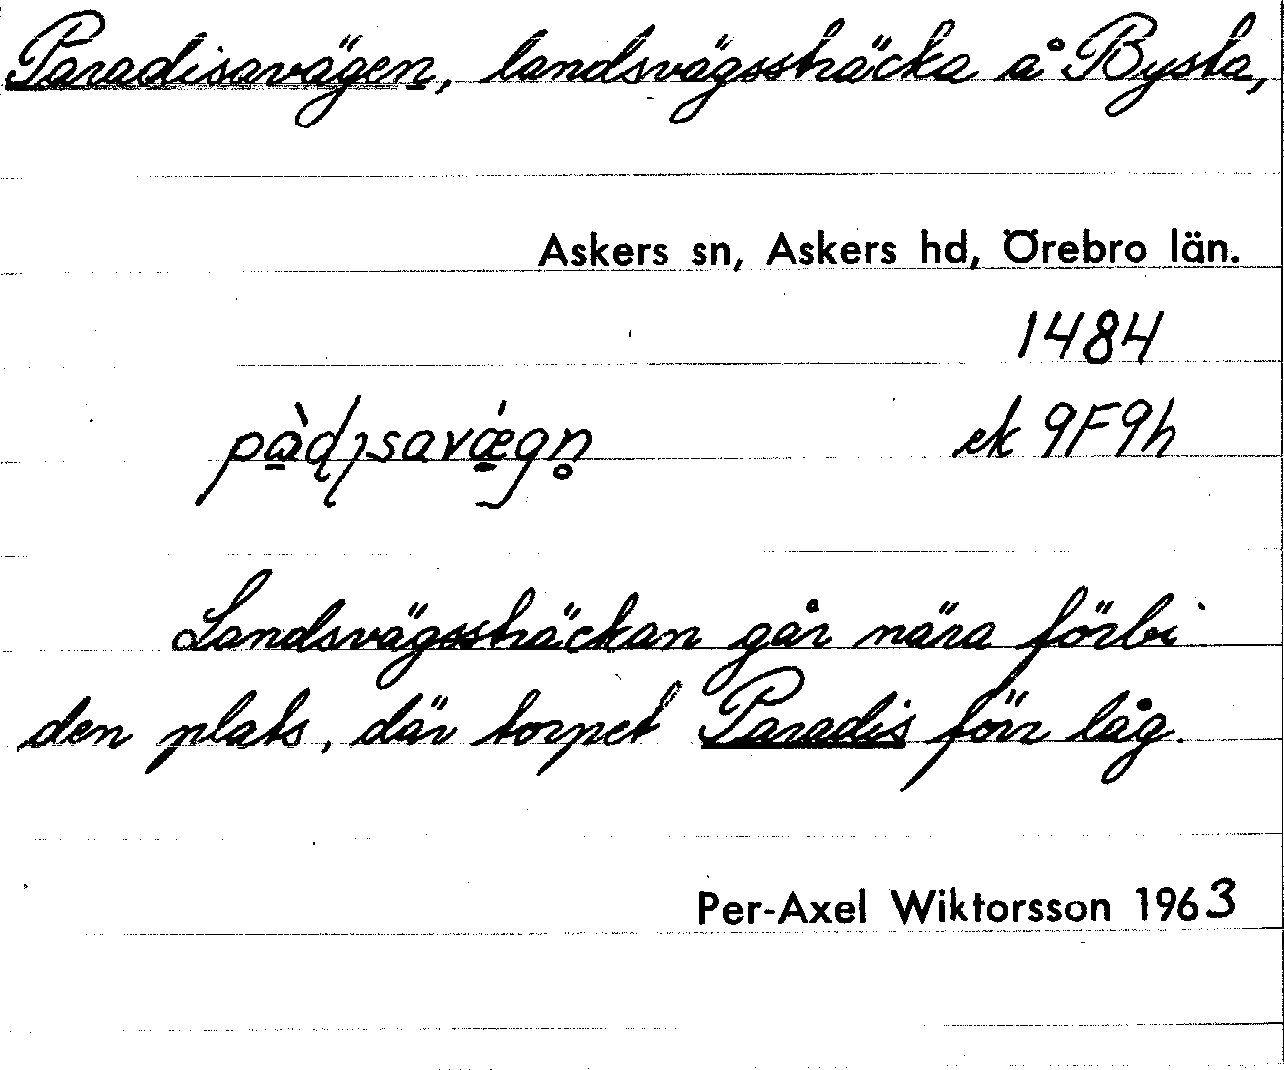 Paradisavägen, landsvägssträcka å Bysta,
Askers sn, Askers hd, Örebro län.
1484
pàḍısavǽgn̥ ek 9F9h
Landsvägssträckan går nära förbi
den plats, där torpet Paradis förr låg.
Per-Axel Wiktorsson 1963